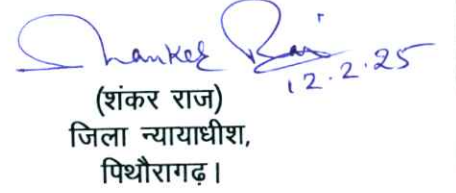 Shanker Raj
12.2.25
(शंकर राज)
जिला न्यायाधीश,
पिथौरागढ़।